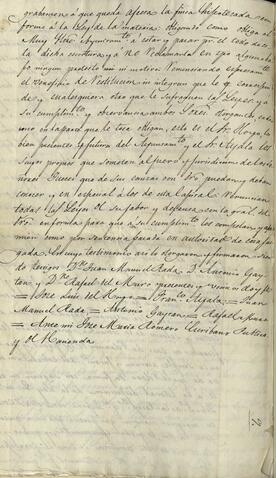 gravamen á que queda afecta la finca hipotecada con
forme á la Ley de la materia; obligando como obliga al
Muy Ylltre Ayuntamto á estar y pasar por el todo de
la dicha escritura y á no reclamarla en epoca alguna ba
jo ningun pretesto ni motivo: Renunciando espresamte
el beneficio de restitucion in integrum que le corresponde
de, y cualesquiera otro que le sufraguen las Leyes, y á
su cumplimto y observancia ambos Sores otorgantes, cada
uno en la parte que le toca obligan, este es el Sr Hoyo, los
bienes presentes y futuros del Ayuntamto y el Sr Ayala los
suyos propios que someten al fuero y jurisdiccion de los Se
ñores Jueces que de sus causas conforme á dro puedan y deban
conocer y en especial á los de esta Capital: Renuncian
todas las Leyes de su favor y defensa con la gral del
dro en forma para que á su cumplimto los compelan y apre
mien como por sentencia pasada en autoridad de cosa juz
gada. En cuyo testimonio asi lo otorgaron y firmaron sien
do testigos Dn Juan Manuel Rada, Dn Antonio Gay
tan y Dn Rafael del Muro presentes y vecinos doy fé
= Jose Luis del Hoyo = Franco Ayala = Juan
Manuel Rada = Antonio Gaytan = Rafael Muro
= Ante mi Jose Maria Romero Escribano Publico
y de Hacienda